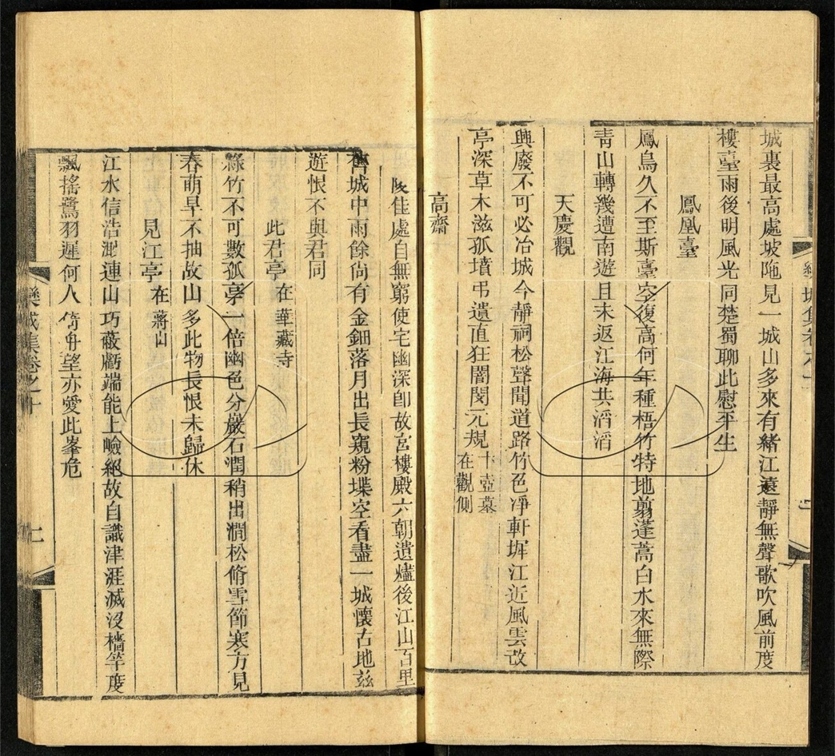 城裏最高處坡陁見一城山多來有緒江遠靜無聲歌吹風前度
樓臺雨後明風光同楚蜀聊此慰平生
鳳凰臺
鳳鳥久不至斯臺空復高何年種梧竹特地翦蓬蒿白水來無際
青山轉幾遭南遊且未返江海共滔滔
天慶觀
興廢不可必冶城今靜祠松聲聞道路竹色凈軒墀江近風雲改
亭深草木滋孤墳弔遺直狂闇閔元規卞壼墓在觀側
高齋
陵佳處自無窮使宅幽深卽故宮樓殿六朝遺燼後江山百里
舊城中雨餘尙有金鈿落月出長窺粉堞空看盡一城懷古地玆
遊恨不與君同
此君亭在華藏寺
綠竹不可數孤亭一倍幽色分巖石潤稍出澗松脩雪節寒方見
春萌早不抽故山多此物長恨未歸休
見江亭在蔣山
江水信浩渺連山巧蔽虧端能上嶮絕故自識津涯滅沒檣竿度
飄搖鷺羽遲何人倚舟望亦愛此峯危
欒城集卷之十
七